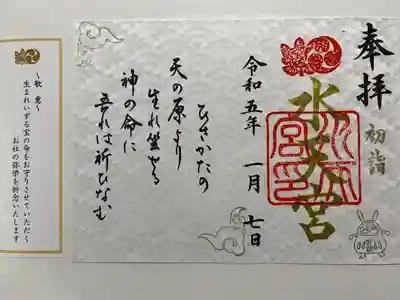 奉拝
初詣
水天宮
水天
宮印
令和五年 一月 七日
ひさかたの
天の原より
生れ坐せる
神の命に
吾れは祈ひなむ
～歌意～
生まれいずる宝の命をお守りさせていただく
お社の弥栄を祈念いたします